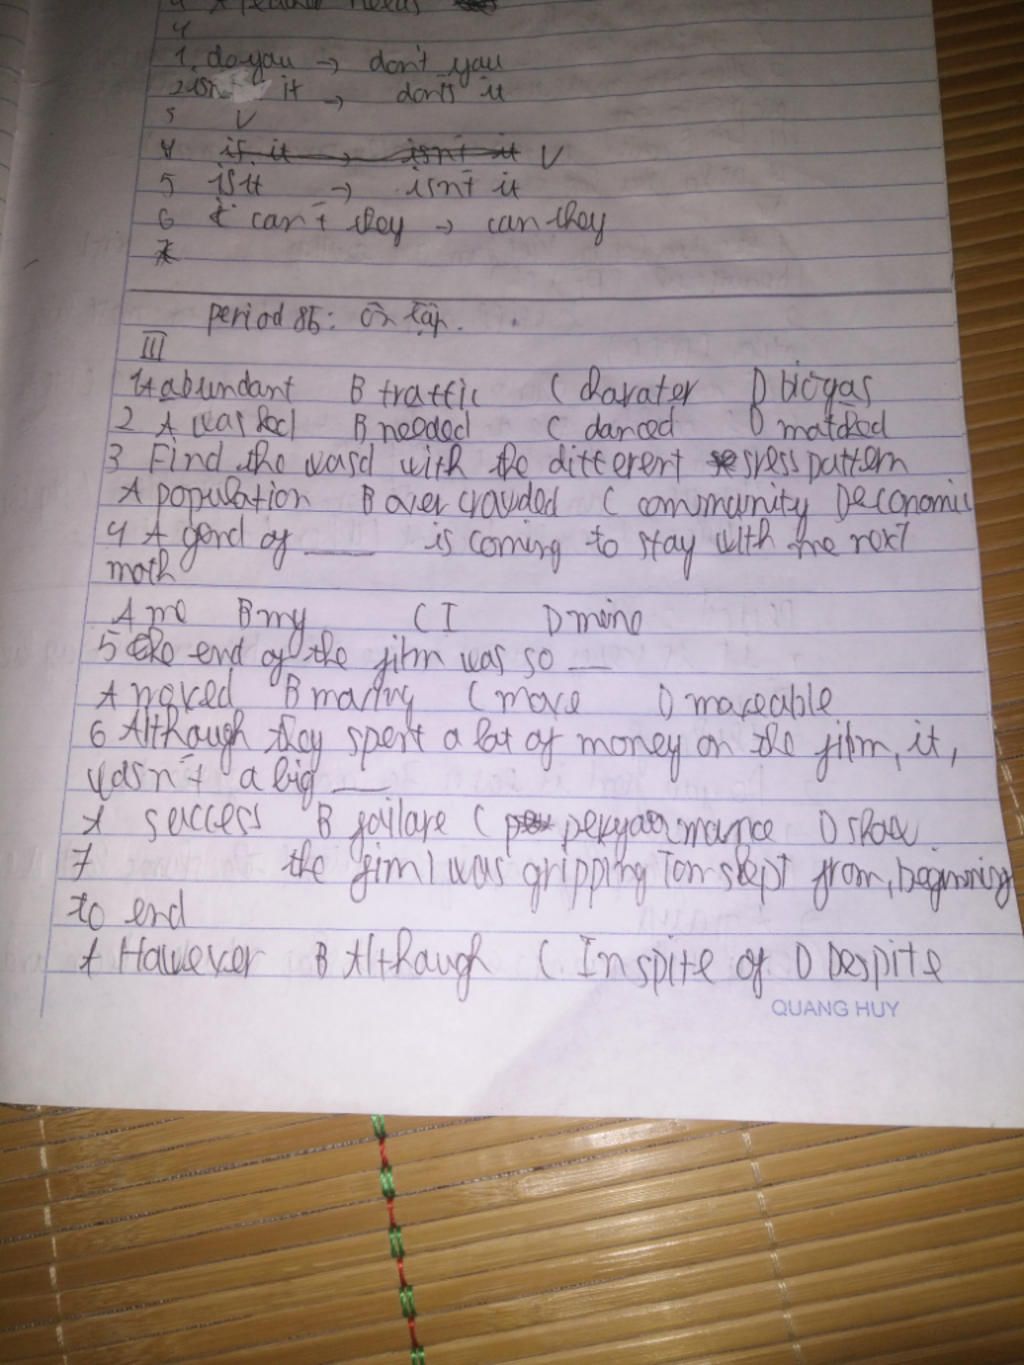 4
1. do you → don't you
2 isn't it → don't it
3 V
4 is it → isn't it V
5 is it → isn't it
6 can't they → can they
7
period 85: ôn tập.
III
1 A abundant B traffic C charater D biogas
2 A wasked B needed C danced D matched
3 Find the word with the different stress pattern
A population B over crowded C community D economic
4 A friend of ___ is coming to stay with me next
moth
A me B my C I D mine
5 the end of the film was so ___
A moved B moving C move D moveable
6 Although they spent a lot of money on the film, it,
wasn't a big ___
A success B failare C performance D show
7 the film I was gripping Tom slept from, beginning
to end
A However B Although C In spite of D Despite
QUANG HUY